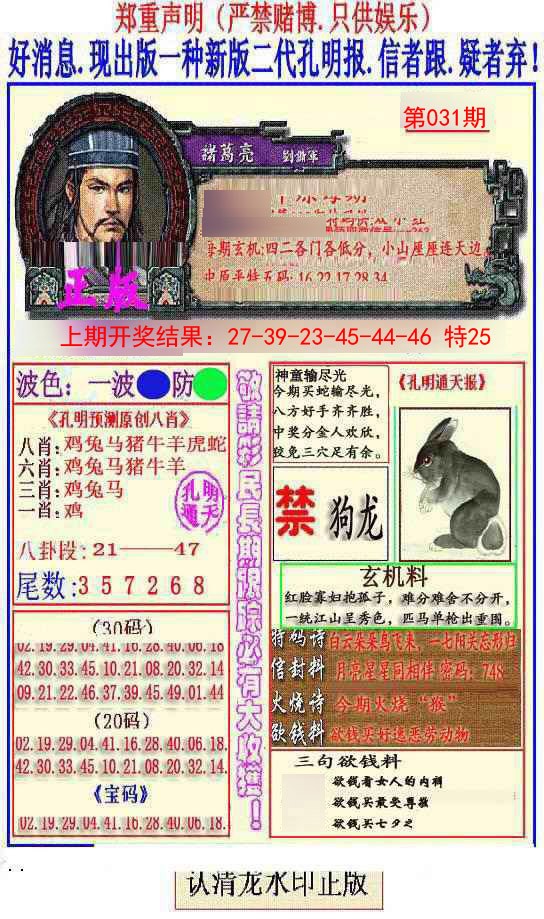 郑重声明（严禁赌博.只供娱乐）
好消息.现出版一种新版二代孔明报.信者跟.疑者弃！
第031期
諸葛亮 劉鐤軍
每期玄机:四二各门各低分，小山屋屋连天边。
中后平特五码: 16.22.17.28.34
正版
上期开奖结果：27-39-23-45-44-46 特25
波色：一波 防
《孔明预测原创八肖》
八肖:鸡兔马猪牛羊虎蛇
六肖:鸡兔马猪牛羊
三肖:鸡兔马
一肖:鸡
孔明通天
八卦段:21——47
尾数:357268
(30码)
02.19.29.04.41.16.28.40.06.18
42.30.33.45.10.21.08.20.32.14
09.21.22.46.37.39.45.49.01.44
(20码)
02.19.29.04.41.16.28.40.06.18.
42.30.33.45.10.21.08.20.32.14.
《宝码》
02.19.29.04.41.16.28.40.06.18.
敬請彩民長期跟踪必有大收獲！
神童输尽光
今期买蛇输尽光，
八方好手齐齐胜，
中奖分金人欢欣，
狡兔三穴足有余。
《孔明通天报》
禁 狗龙
玄机料
红脸寡妇抱孤子，难分难舍不分开，
一统江山呈秀色，匹马单枪出重围。
特码诗 白云朵朵鸟飞来，一七阳关忘形归
信封料 月亮星星同相伴 密码：748
火烧诗 今期火烧“猴”
欲钱料 欲钱买好逸恶劳动物
三句欲钱料
欲钱看女人的内裤
欲钱买最受尊敬
欲钱买七夕之
认清龙水印正版